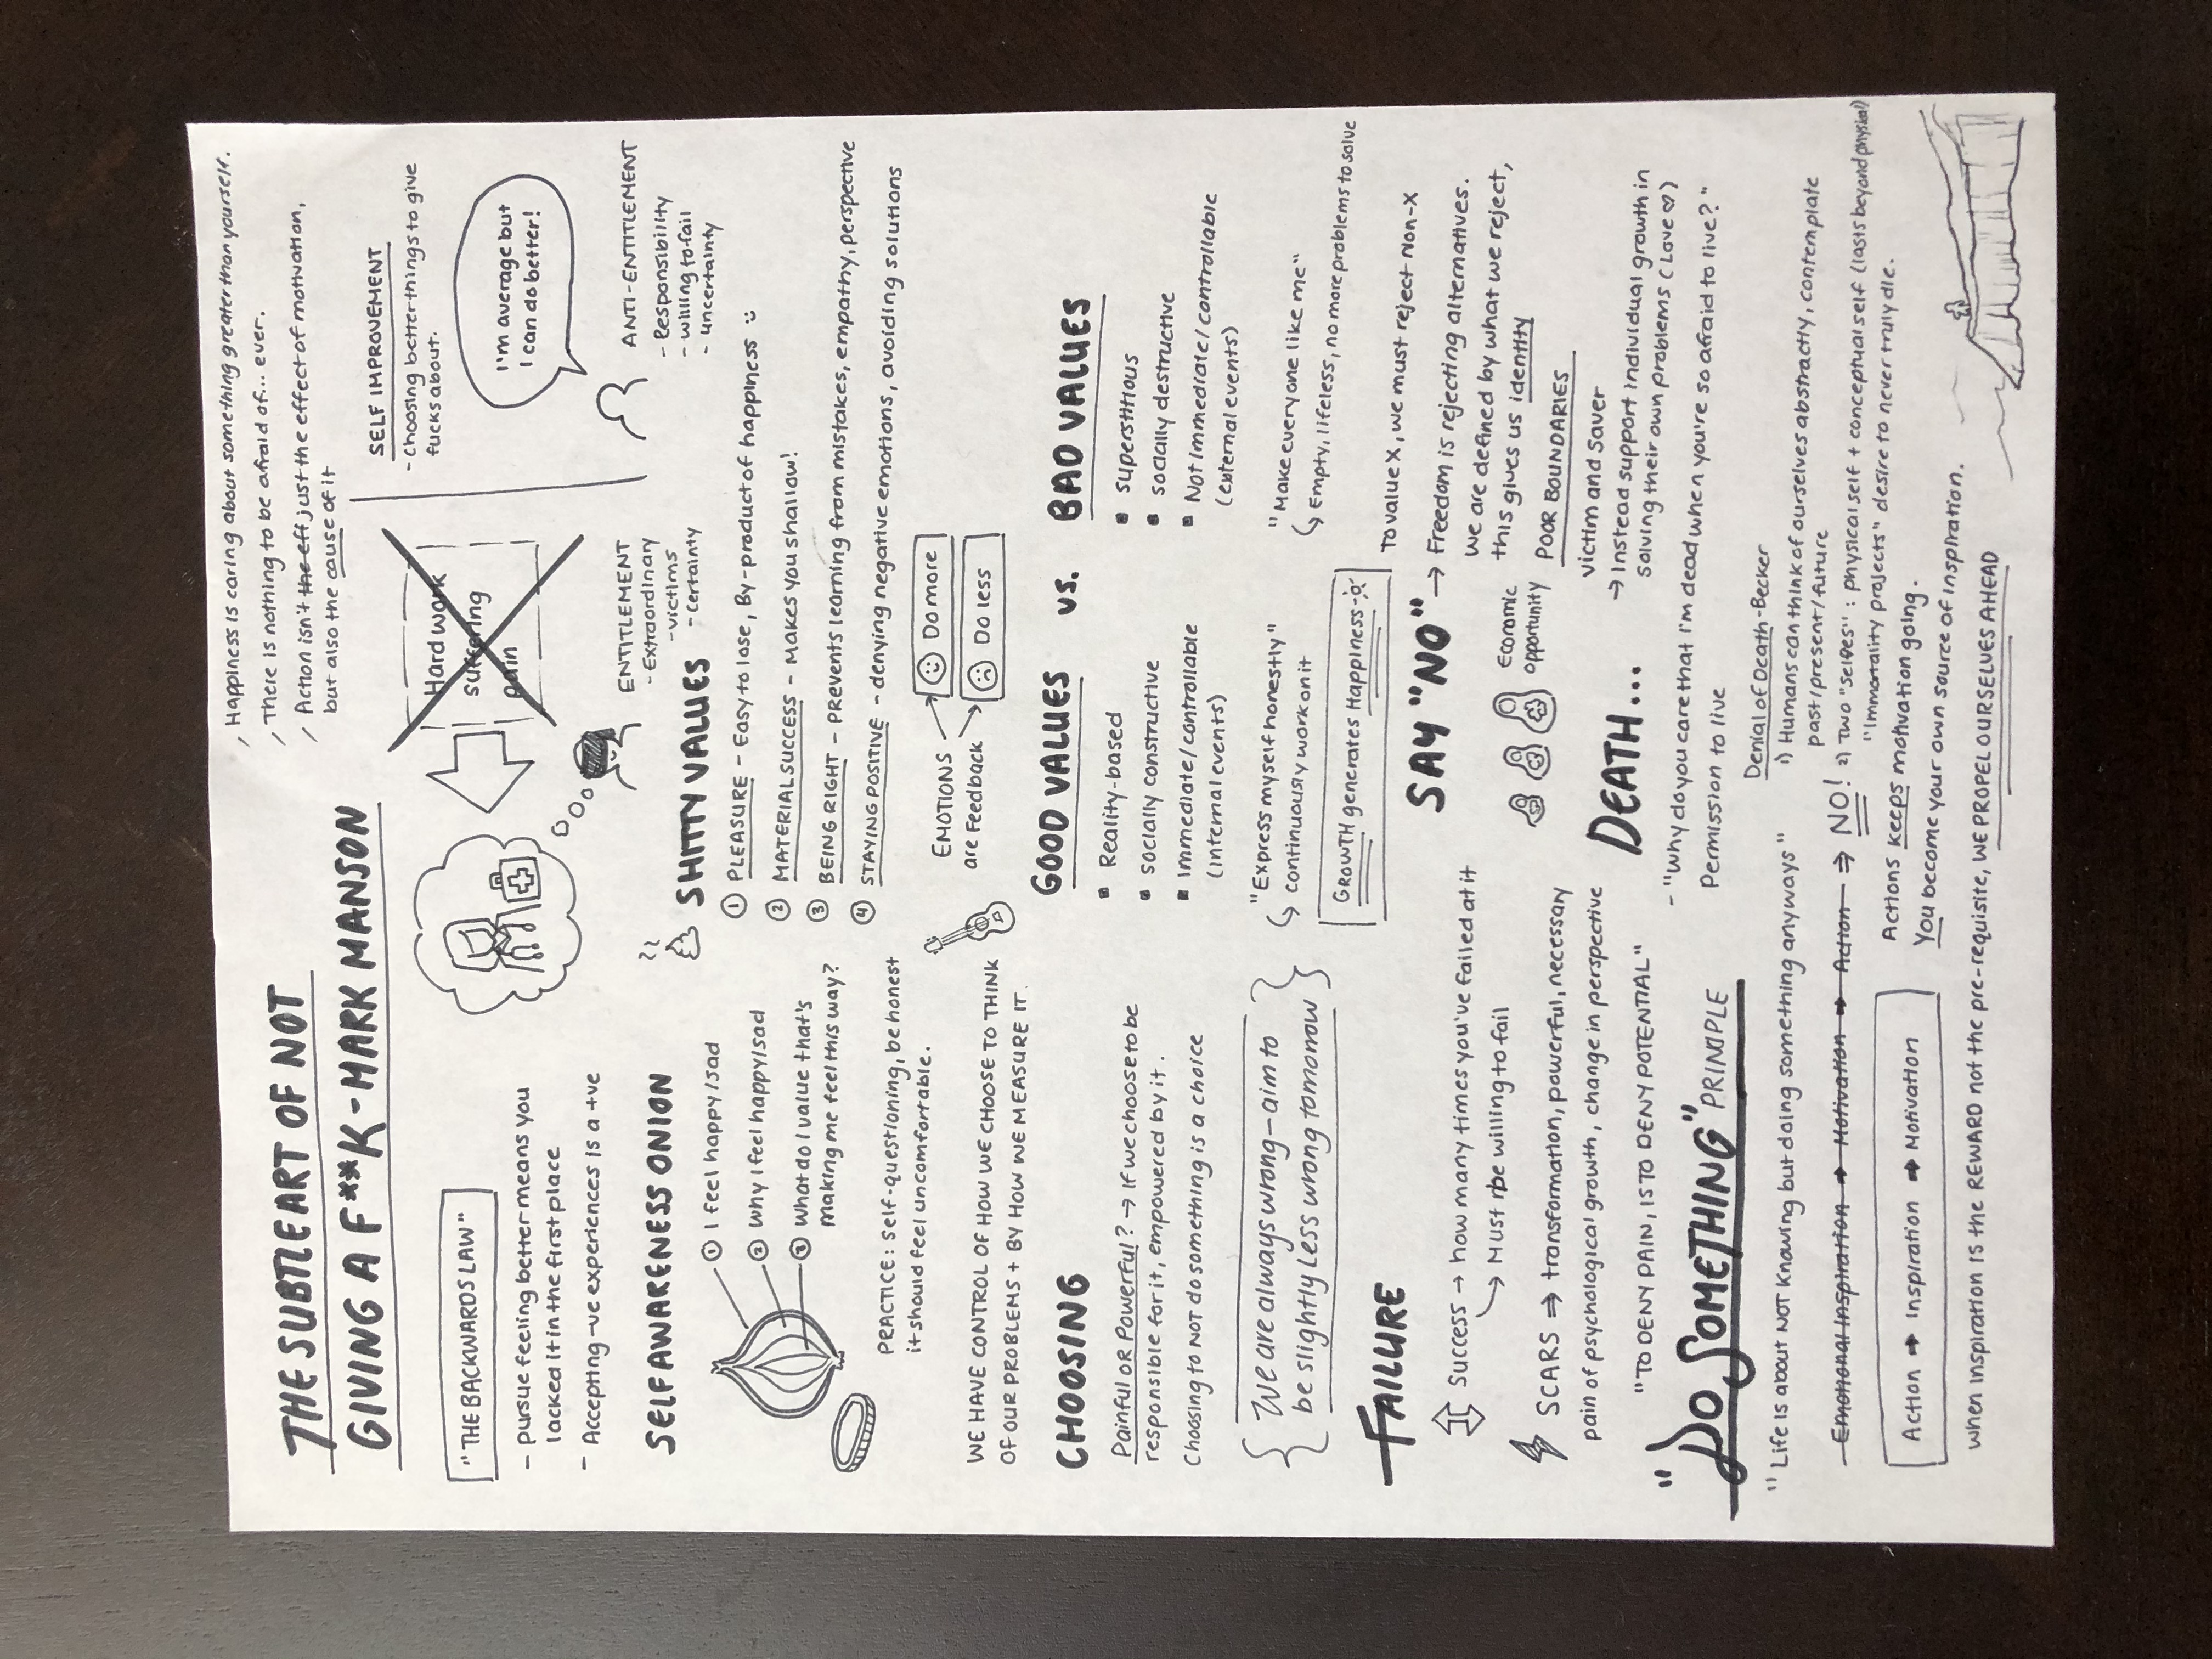 THE SUBTLE ART OF NOT
GIVING A F**K - MARK MANSON
, Happiness is caring about something greater than yourself.
, There is nothing to be afraid of... ever.
/ Action isn't the eff just the effect of motivation,
but also the cause of it
"THE BACKWARDS LAW"
- pursue feeling better means you
lacked it in the first place
- Accepting -ve experiences is a +ve
Hard work
suffering
pain
ENTITLEMENT
- Extraordinary
- victims
- certainty
SELF IMPROVEMENT
- choosing better things to give
fucks about.
I'm average but
I can do better!
ANTI-ENTITLEMENT
- Responsibility
- willing to fail
- uncertainty
SELF AWARENESS ONION
① I feel happy/sad
② Why I feel happy/sad
③ What do I value that's
making me feel this way?
PRACTICE: self-questioning, be honest
it should feel uncomfortable.
WE HAVE CONTROL OF HOW WE CHOOSE TO THINK
OF OUR PROBLEMS + BY HOW WE MEASURE IT.
SHITTY VALUES
① PLEASURE - Easy to lose, By-product of happiness
② MATERIAL SUCCESS - Makes you shallow!
③ BEING RIGHT - Prevents learning from mistakes, empathy, perspective
④ STAYING POSITIVE - denying negative emotions, avoiding solutions
EMOTIONS
are Feedback
Do more
Do less
CHOOSING
Painful OR Powerful? → If we choose to be
responsible for it, empowered by it.
Choosing to NOT do something is a choice
{ We are always wrong - aim to
be slightly less wrong tomorrow }
GOOD VALUES vs. BAD VALUES
▪ Reality-based
▪ socially constructive
▪ Immediate/controllable
(internal events)
"Express myself honestly"
continuously work on it
GROWTH generates Happiness
▪ superstitious
▪ socially destructive
▪ Not immediate/controllable
(external events)
"Make everyone like me"
Empty, lifeless, no more problems to solve
FAILURE
Success → how many times you've failed at it
→ Must be willing to fail
SCARS ⇒ transformation, powerful, necessary
pain of psychological growth, change in perspective
"TO DENY PAIN, IS TO DENY POTENTIAL"
To value X, we must reject Non-X
SAY "NO" → Freedom is rejecting alternatives.
We are defined by what we reject,
this gives us identity
Economic
opportunity
POOR BOUNDARIES
victim and saver
→ Instead support individual growth in
solving their own problems (Love ♡)
DEATH...
- "Why do you care that I'm dead when you're so afraid to live?"
Permission to live
Denial of Death - Becker
1) Humans can think of ourselves abstractly, contemplate
past/present/future
2) TWO "selves": physical self + conceptual self (lasts beyond physical)
"Immortality projects" desire to never truly die.
"DO SOMETHING" PRINCIPLE
"Life is about NOT Knowing but doing something anyways"
Emotional Inspiration → Motivation → Action ⇒ NO!
Action → Inspiration → Motivation
Actions keeps motivation going.
You become your own source of inspiration.
when inspiration is the REWARD not the pre-requisite, WE PROPEL OURSELVES AHEAD